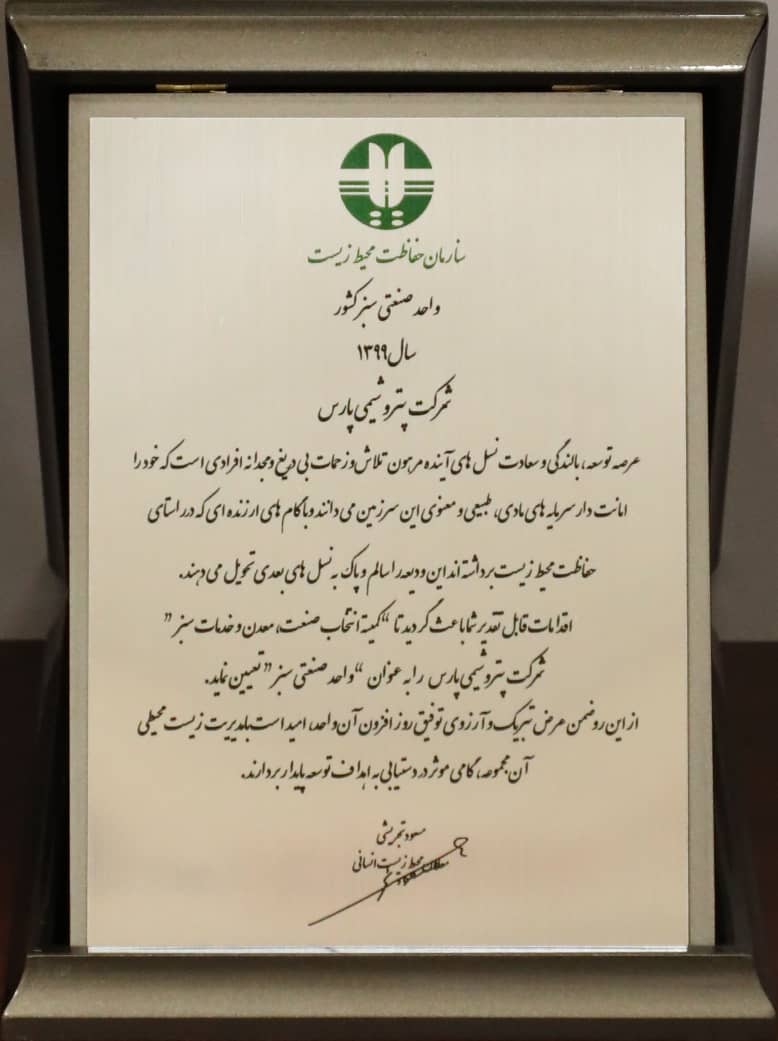 سازمان حفاظت محیط زیست
واحد صنعتی سبز کشور
سال ۱۳۹۹
شرکت پتروشیمی پارس
عرصه توسعه، بالندگی و سعادت نسل های آینده مرهون تلاش و زحمات بی دریغ و مجدانه افرادی است که خود را
امانت دار سرمایه های مادی، طبیعی و معنوی این سرزمین می دانند و با گام های ارزنده ای که در راستای
حفاظت محیط زیست برداشته اند این ودیعه را سالم و پاک به نسل های بعدی تحویل می دهند.
اقدامات قابل تقدیر شما باعث گردید تا “کمیته انتخاب صنعت، معدن و خدمات سبز”
شرکت پتروشیمی پارس را به عنوان “واحد صنعتی سبز” تعیین نماید.
از این رو ضمن عرض تبریک و آرزوی توفیق روز افزون آن واحد، امید است با مدیریت زیست محیطی
آن مجموعه، گامی موثر در دستیابی به اهداف توسعه پایدار بردارند.
مسعود تجریشی
محیط زیست انسانی